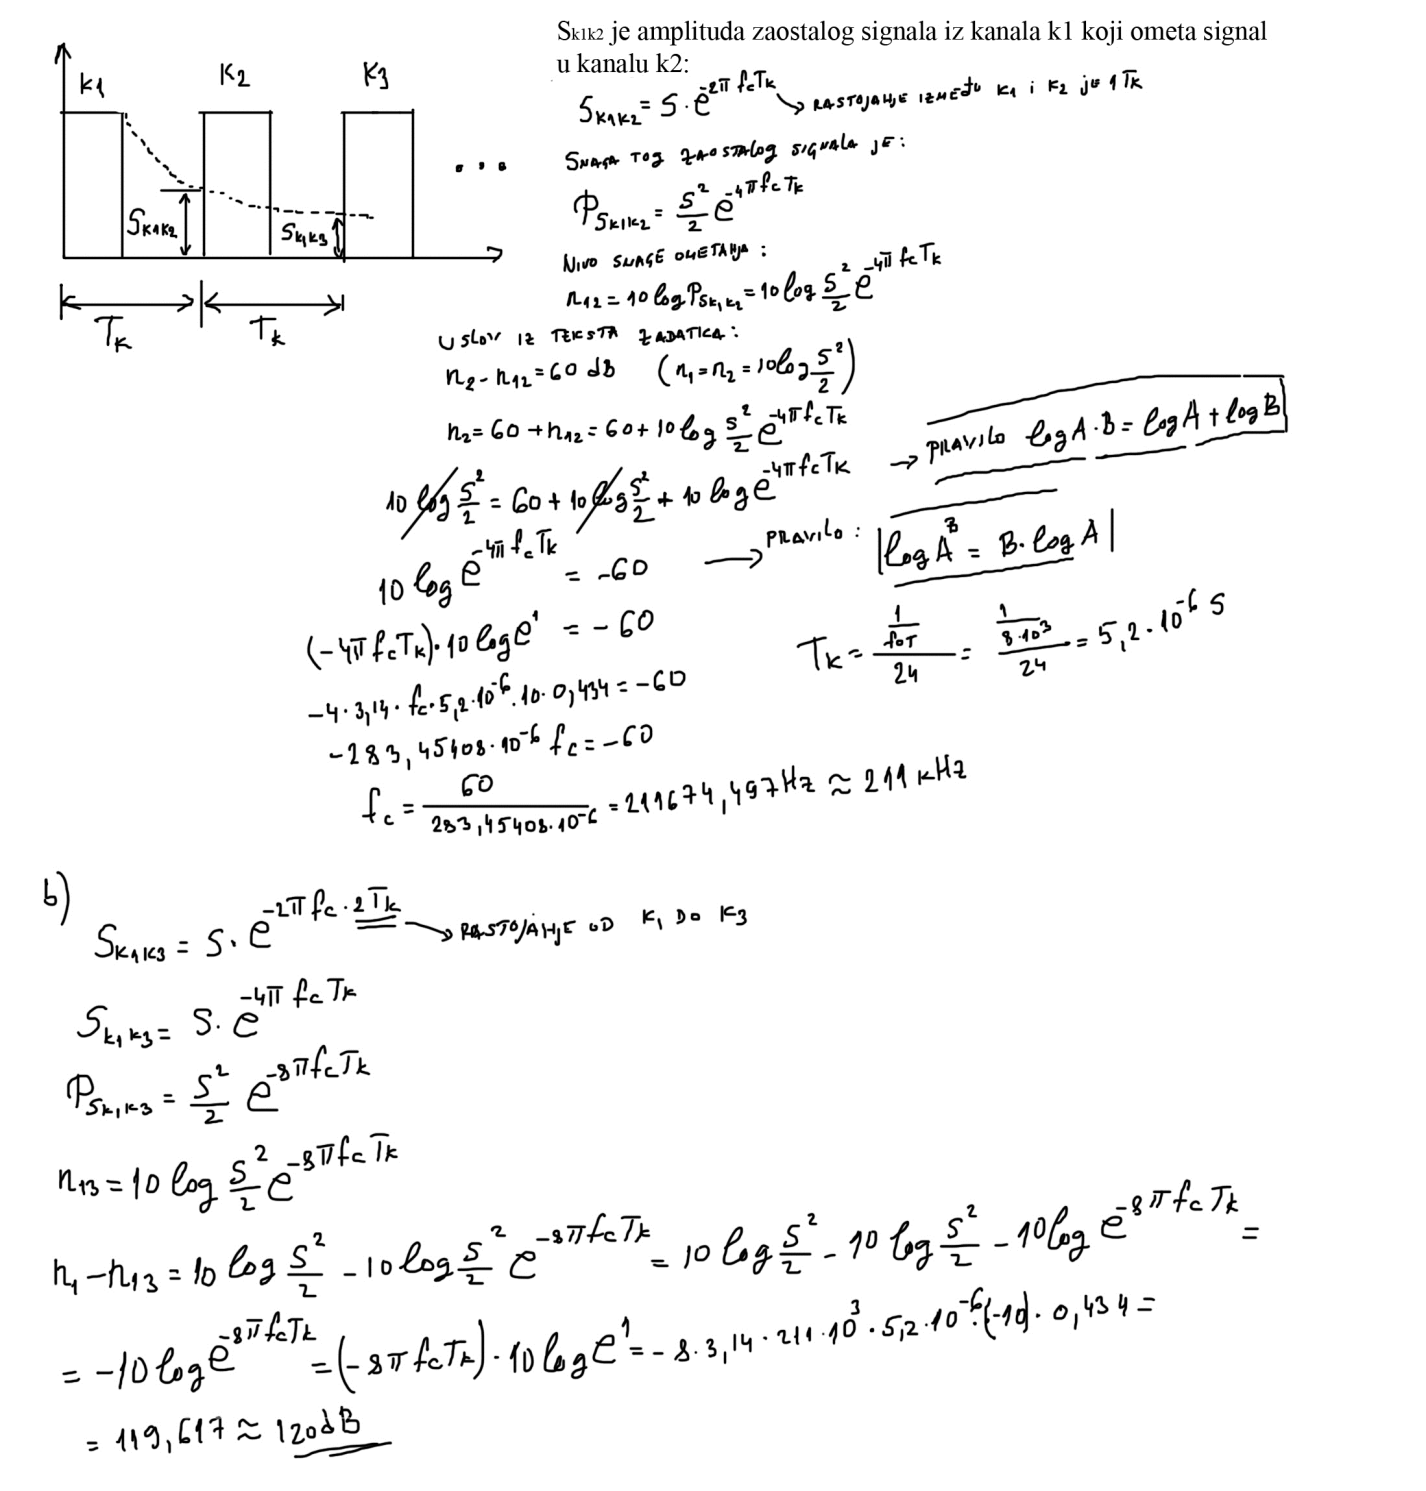 S_k1k2 je amplituda zaostalog signala iz kanala k1 koji ometa signal
u kanalu k2:
K1 K2 K3
...
S_K1K2
S_K1K3
T_K T_K
S_K1K2 = S · e^(-2π fc Tk) → RASTOJANJE IZMEĐU K1 i K2 je 1 Tk
SNAGA TOG ZAOSTALOG SIGNALA JE:
P_SK1K2 = S²/2 e^(-4π fc Tk)
NIVO SNAGE OMETANJA:
n12 = 10 log P_SK1K2 = 10 log S²/2 e^(-4π fc Tk)
USLOV IZ TEKSTA ZADATKA:
n2 - n12 = 60 dB (n1 = n2 = 10 log S²/2)
n2 = 60 + n12 = 60 + 10 log S²/2 e^(-4π fc Tk)
→ PRAVILO log A · B = log A + log B
10 log S²/2 = 60 + 10 log S²/2 + 10 log e^(-4π fc Tk)
10 log e^(-4π fc Tk) = -60
→ PRAVILO: |log A^B = B · log A|
(-4π fc Tk) · 10 log e^1 = -60
Tk = (1/for)/24 = (1/8·10³)/24 = 5,2 · 10^-6 S
-4 · 3,14 · fc · 5,2 · 10^-6 · 10 · 0,434 = -60
-283,45408 · 10^-6 fc = -60
fc = 60/(283,45408 · 10^-6) = 211674,497 Hz ≈ 211 kHz
b)
S_K1K3 = S · e^(-2π fc · 2Tk) → RASTOJANJE OD K1 DO K3
S_K1K3 = S · e^(-4π fc Tk)
P_SK1K3 = S²/2 e^(-8π fc Tk)
n13 = 10 log S²/2 e^(-8π fc Tk)
n1 - n13 = 10 log S²/2 - 10 log S²/2 e^(-8π fc Tk) = 10 log S²/2 - 10 log S²/2 - 10 log e^(-8π fc Tk) =
= -10 log e^(-8π fc Tk) = (-8π fc Tk) · 10 log e^1 = -8 · 3,14 · 211 · 10³ · 5,2 · 10^-6 · (-10) · 0,434 =
= 119,617 ≈ 120 dB